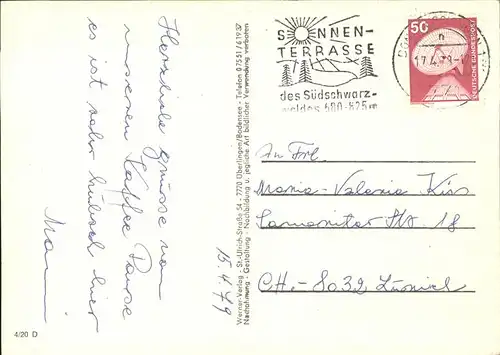 Herzliche Grüsse von
unserer Kaffee Pause
es ist sehr hübsch hier
15.4.79
Werner-Verlag - St.-Ulrich-Straße 54 - 7770 Überlingen/Bodensee - Telefon 0 75 51 /
Nachahmung - Gestaltung - Nachbildung u. jegliche Art bildlicher Verwendung verboten
4/20 D
SONNEN-
TERRASSE
des Südschwarz-
waldes 680-825 m
17.4.79
50
DEUTSCHE BUNDESPOST
An Frl.
Maria-Valeria Kiss
Str. 18
CH.-8032 Zürich